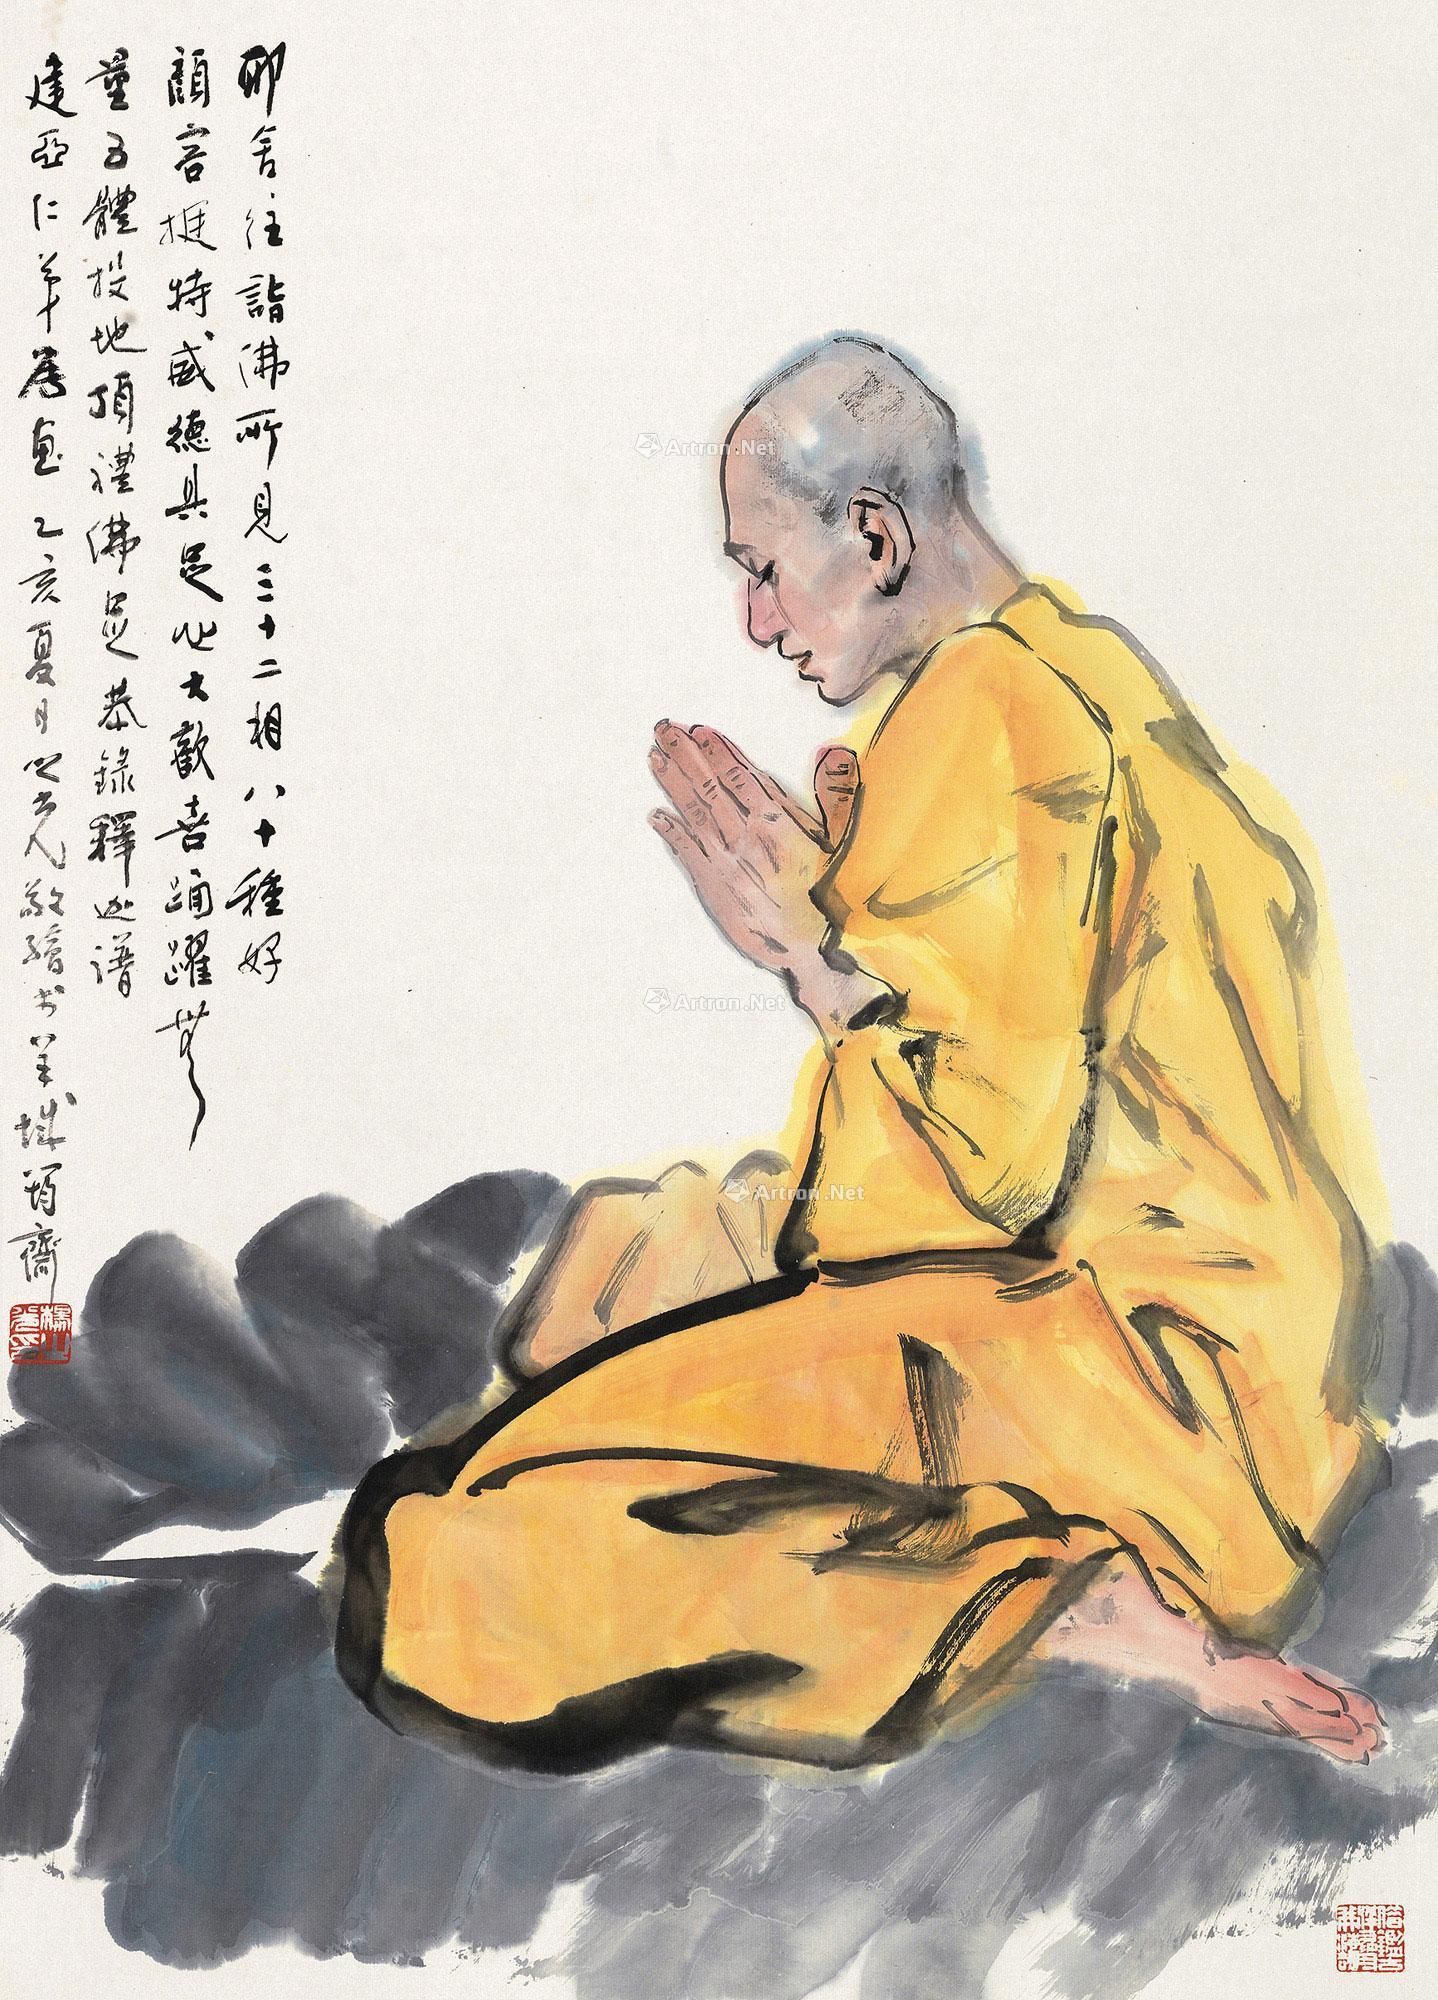 耶舍往詣佛所見三十二相八十種好
顏容挺特威德具足心大歡喜踊躍無
量五體投地頂禮佛足恭錄釋迦譜
建亞仁弟屬画乙亥夏日之光敬繪於羊城
楊之光印
Artron.Net
Artron.Net
Artron.Net